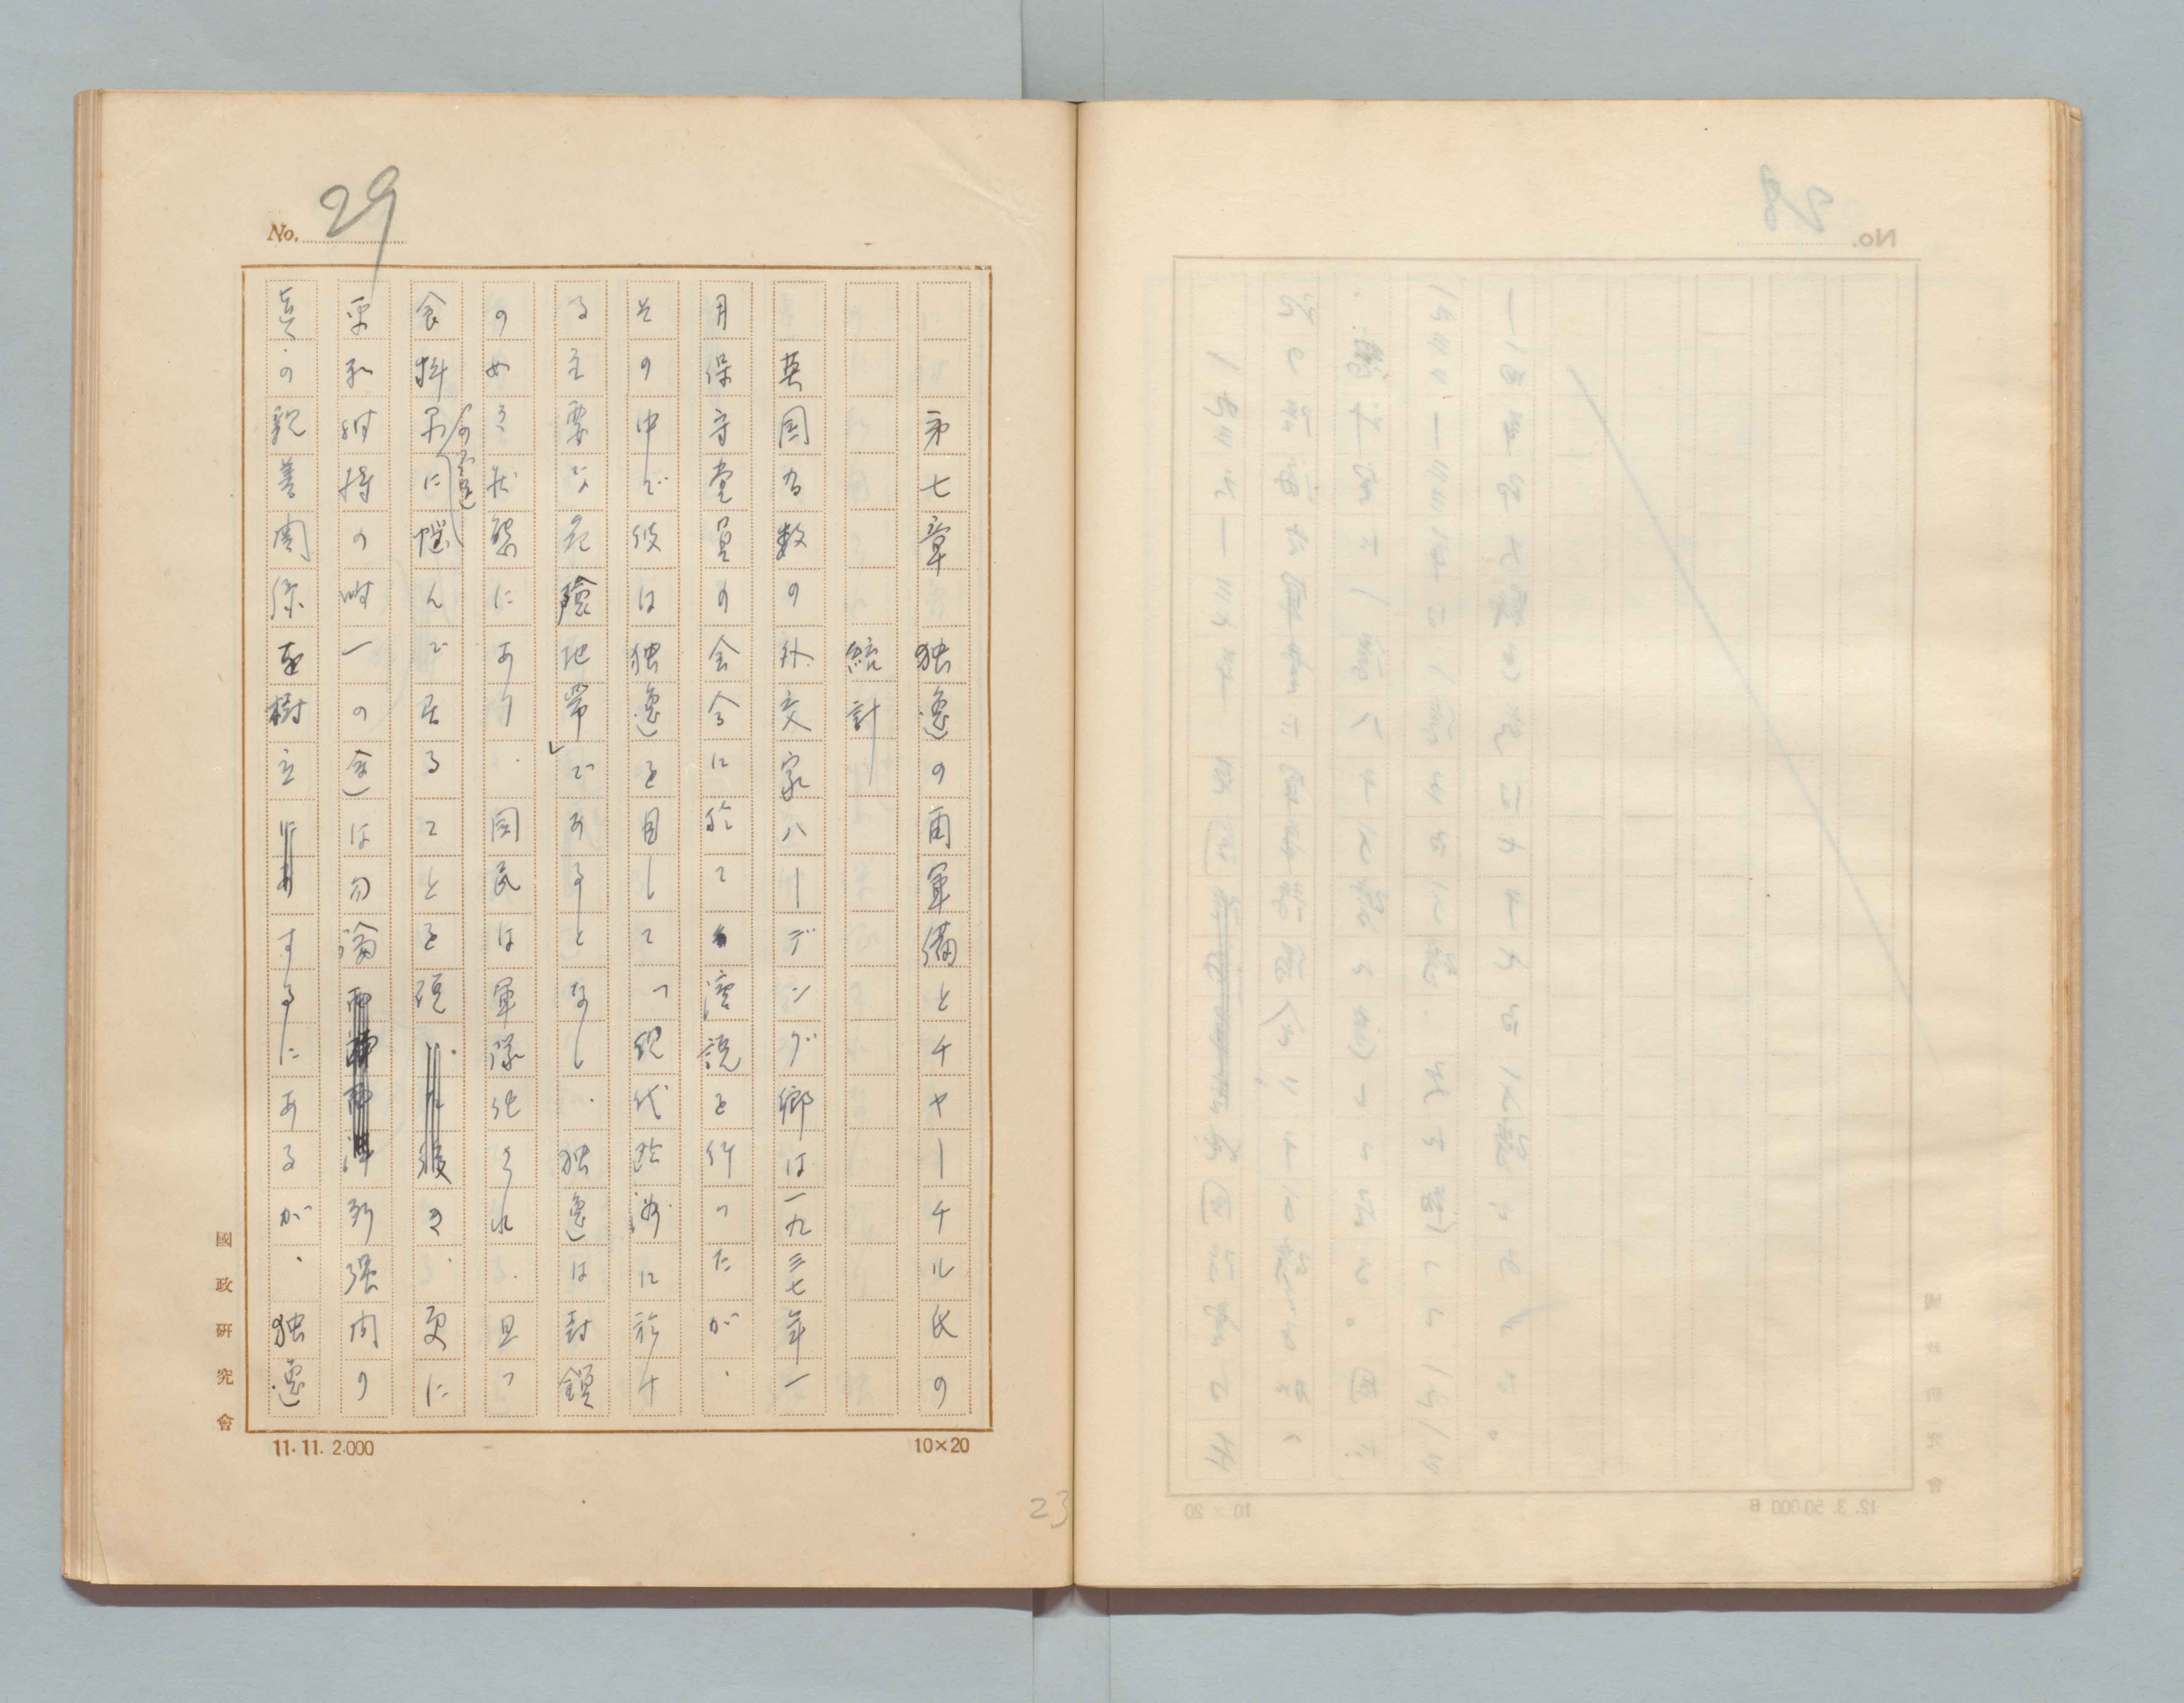 No. 29
第七章　独逸の再軍備とチャーチル氏の
統計
英国有数の外交家ハーデング郷は一九三七年一
月保守党員の会合に於て演説を行つたが、
その中で彼は独逸を目して「現代欧洲に於け
る主要な危険地帯」であるとなし、独逸は封鎖
の如き状態にあり、国民は軍隊化され、且つ
食料品の不足に悩んで居ることを説き、更に
平和維持の唯一の途は勿論列強間の
真の親善関係を樹立するにあるが、独逸
國政研究會
11. 11. 2.000
10×20
23